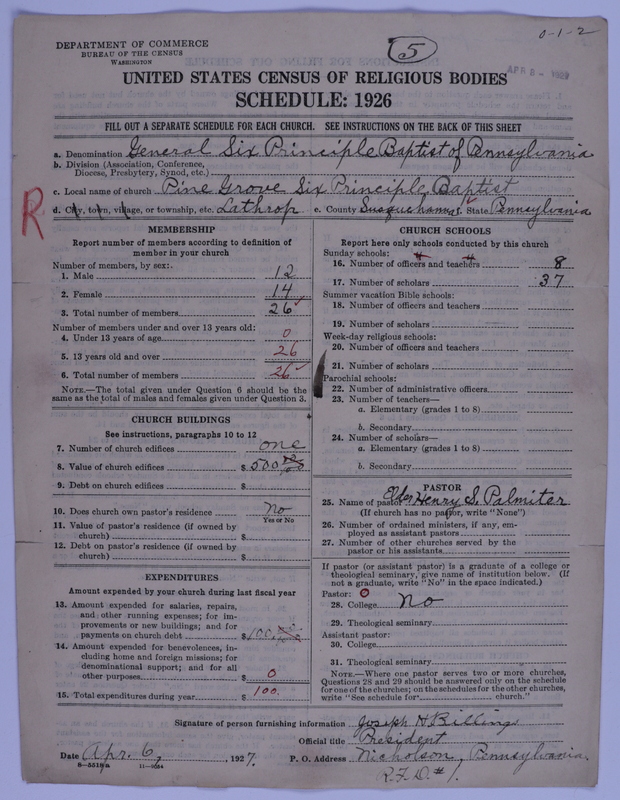 0-1-2
5
DEPARTMENT OF COMMERCE
BUREAU OF THE CENSUS
WASHINGTON
APR 8 - 1927
UNITED STATES CENSUS OF RELIGIOUS BODIES
SCHEDULE: 1926
FILL OUT A SEPARATE SCHEDULE FOR EACH CHURCH. SEE INSTRUCTIONS ON THE BACK OF THIS SHEET
a. Denomination General Six Principle Baptist of Pennsylvania
b. Division (Association, Conference,
Diocese, Presbytery, Synod, etc.)
c. Local name of church Pine Grove Six Principle Baptist
R
d. City, town, village, or township, etc. Lathrop e. County Susquehanna f. State Pennsylvania
MEMBERSHIP
Report number of members according to definition of
member in your church
Number of members, by sex:
1. Male 12
2. Female 14
3. Total number of members 26
Number of members under and over 13 years old:
4. Under 13 years of age 0
5. 13 years old and over 26
6. Total number of members 26
NOTE.—The total given under Question 6 should be the
same as the total of males and females given under Question 3.
CHURCH BUILDINGS
See instructions, paragraphs 10 to 12
7. Number of church edifices one
8. Value of church edifices $ 500
9. Debt on church edifices $
10. Does church own pastor's residence No
Yes or No
11. Value of pastor's residence (if owned by
church) $
12. Debt on pastor's residence (if owned by
church) $
EXPENDITURES
Amount expended by your church during last fiscal year
13. Amount expended for salaries, repairs,
and other running expenses; for im-
provements or new buildings; and for
payments on church debt $ 100
14. Amount expended for benevolences, in-
cluding home and foreign missions; for
denominational support; and for all
other purposes $ 0
15. Total expenditures during year $ 100.
CHURCH SCHOOLS
Report here only schools conducted by this church
Sunday schools:
16. Number of officers and teachers 8
17. Number of scholars 37
Summer vacation Bible schools:
18. Number of officers and teachers
19. Number of scholars
Week-day religious schools:
20. Number of officers and teachers
21. Number of scholars
Parochial schools:
22. Number of administrative officers
23. Number of teachers—
a. Elementary (grades 1 to 8)
b. Secondary
24. Number of scholars—
a. Elementary (grades 1 to 8)
b. Secondary
PASTOR
25. Name of pastor Elder Henry S. Palmiter
(If church has no pastor, write "None")
26. Number of ordained ministers, if any, em-
ployed as assistant pastors
27. Number of other churches served by the
pastor or his assistants
If pastor (or assistant pastor) is a graduate of a college or
theological seminary, give name of institution below. (If
not a graduate, write "No" in the space indicated.)
Pastor: 0
28. College No
29. Theological seminary
Assistant pastor:
30. College
31. Theological seminary
NOTE.—Where one pastor serves two or more churches,
Questions 28 and 29 should be answered only on the schedule
for one of the churches; on the schedules for the other churches,
write "See schedule for church."
Signature of person furnishing information Joseph N Billings
Official title President
Date Apr. 6, 1927. P. O. Address Nicholson, Pennsylvania.
8-5518a
R.F.D. # 1.